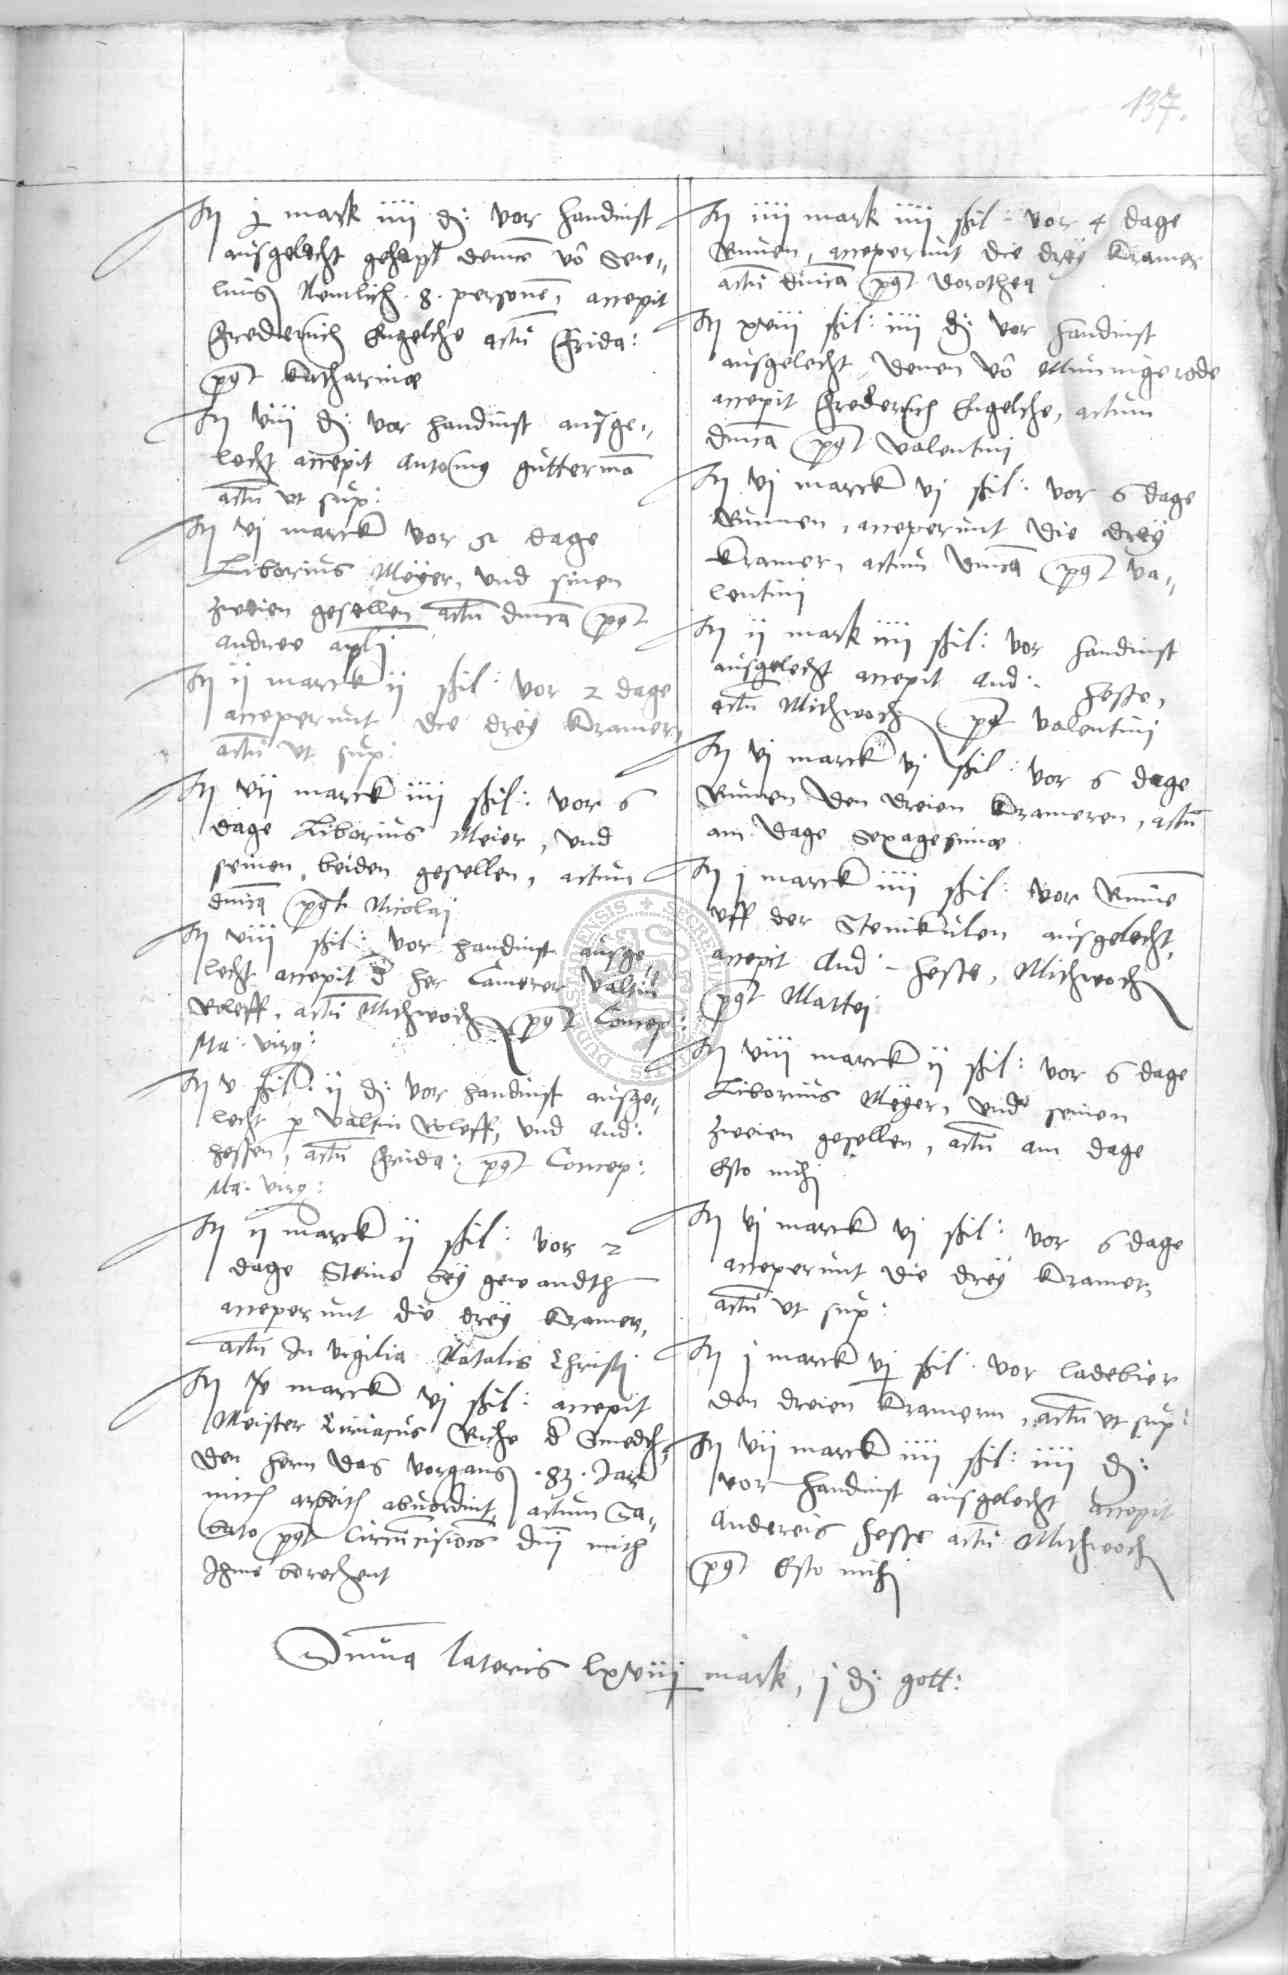 137.
It j mark iiii d: vor handinst
ausgelecht gehapt denen vo Sew-
luns Nemlich .8. personen, accepit
Frederich Engelche actu Frida:
post Katharinæ
It viii d: vor handinst ausge-
lecht accepit Antonius Gutterman
actu ut sup:
It vj marck vor 5 dage
Liborius Meyer, und sinen
zweien gesellen actu dnica post
Andree apli
It ij marck ij shil: vor 2 dage
acceperunt die drey Kramer,
actu ut sup:
It vij marck iiii shil: vor 6
dage Liborius Meier, und
seinen, beiden gesellen, actum
dnica post Nicolaj
It viii shil: vor handinst ausge-
lecht accepit d her Camerer Valtin
Roleff, actu Mithwoch post Concep:
Ma: virg:
It v shil: ij d: vor handinst ausge-
lecht p Valtin Roleff, und And:
Hessen, actu Frida: post Concep:
Ma: virg:
It ij marck ij shil: vor 2
dage Steine bey gewandth
acceperunt die drey Kramer,
actu In vigilia Natalis Christi
It marck vj shil: accepit
Meister Ciriacus Riche d Smedth,
den hern das vorgans .83. Jar
mith arbeith abuordint, actum Sa-
bato post Circumcisiois dni mith
Ihme berechent
It iiii mark iiii shil: vor 4 dage
Rumen, acceperunt die drey Kramer
actu dnica post Dorothea
It xviii shil: iiii d: vor handinst
ausgelecht, denen vo Munnigerode
accepit Frederich Engelche, actum
dnica post Valentini
It vj marck vj shil: vor 6 dage
Rumen, acceperunt die drey
Kramer, actum dnica post Va-
lentini
It ij mark iiii shil: vor handinst
ausgelecht accepit And: Hesse,
actu Mithwoch post Valentini
It vj marck vj shil: vor 6 dage
Rumen den dreien Krameren, actu
am dage Sexagesimæ
It j marck iiii shil: vor Rume
uff der Steinkulen ausgelecht,
accepit And: Hesse, Mithwoch
post Mattei
It viii marck ij shil: vor 6 dage
Liborius Meyer, und seinen
zweien gesellen, actu am dage
Esto mihi
It vj marck vj shil: vor 6 dage
acceperunt die drey Kramer,
actu ut sup:
It j marck vj shil: vor ladebier
den dreien Kramern, actu ut sup:
It vij marck iiii shil: iiii d:
vor handinst ausgelecht accepit
Andereis Hesse actu Mithwoch
post Esto mihi
Suma lateris lxviij mark, j d: gott: